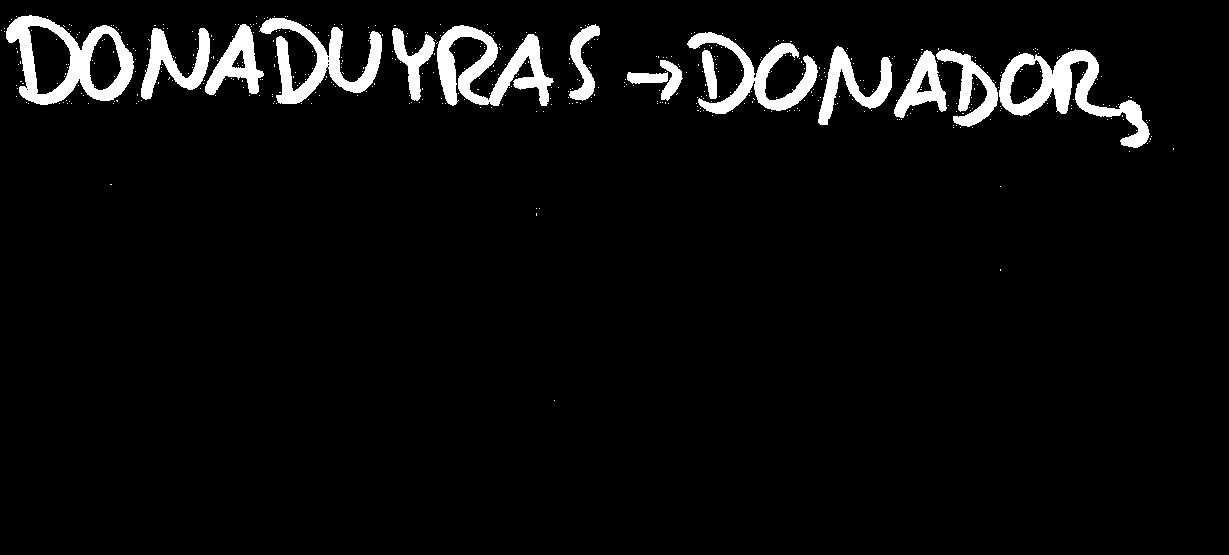 DONADUYRAS → DONADOR,